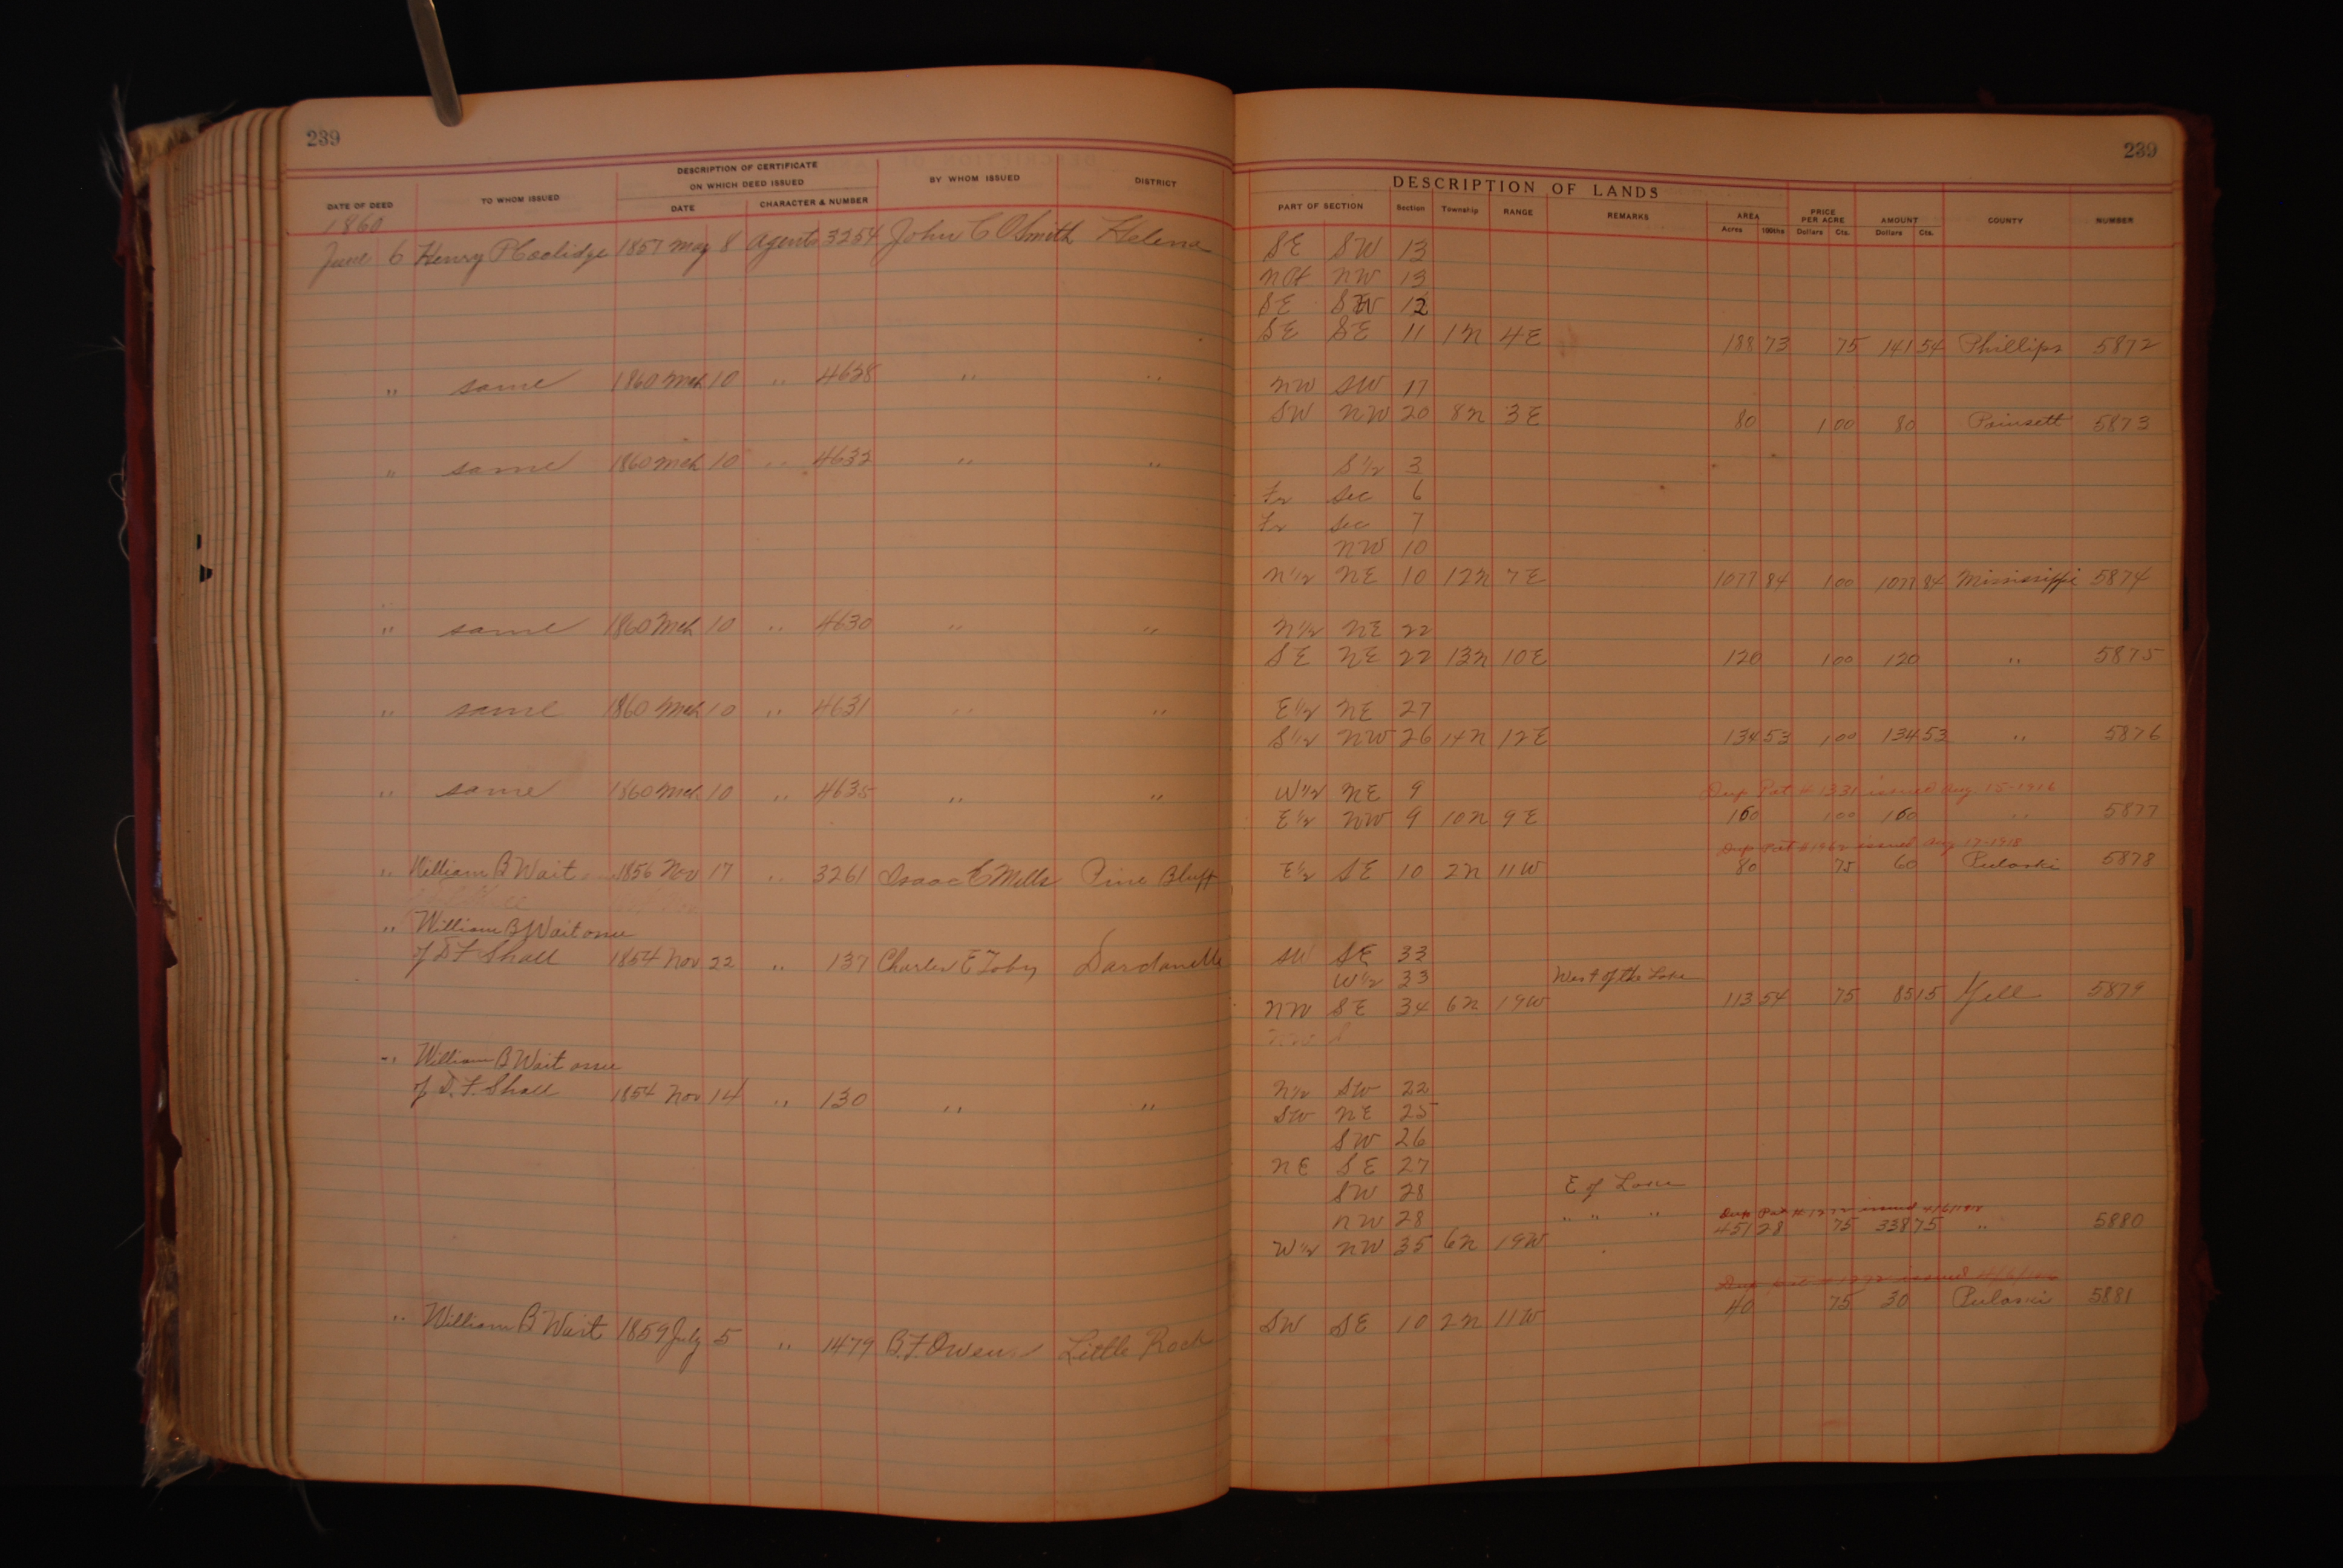 239
DESCRIPTION OF CERTIFICATE
ON WHICH DEED ISSUED
DATE OF DEED TO WHOM ISSUED DATE CHARACTER & NUMBER BY WHOM ISSUED DISTRICT
1860
June 6 Henry P Coolidge 1857 May 8 Agents 3254 John C O Smith Helena
" same 1860 Mch 10 " 4628 " "
" same 1860 Mch 10 " 4632 " "
" same 1860 Mch 10 " 4630 " "
" same 1860 Mch 10 " 4631 " "
" same 1860 Mch 10 " 4635 " "
" William B Wait 1856 Nov 17 " 3261 Isaac C Mills Pine Bluff
" William B Wait assee
of D F Shall 1854 Nov 22 " 137 Charles E Toby Dardanelle
" William B Wait assee
of D. F. Shall 1854 Nov 14 " 130 " "
" William B Wait 1859 July 5 " 1479 B. F. Owens Little Rock
239
DESCRIPTION OF LANDS
PART OF SECTION Section Township RANGE REMARKS AREA PRICE PER ACRE AMOUNT COUNTY NUMBER
Acres 100ths Dollars Cts. Dollars Cts.
SE SW 13
NW 13
SE 12
SE SE 11 1N 4E 188 73 75 141 54 Phillips 5872
NW SW 17
SW NW 20 8N 3E 80 1 00 80 Poinsett 5873
S 1/2 3
Fr Sec 6
Fr Sec 7
NW 10
N 1/2 NE 10 12N 7E 1077 84 1 00 1077 84 Mississippi 5874
N 1/2 NE 22
SE NE 22 13N 10E 120 1 00 120 " 5875
E 1/2 NE 27
S 1/2 NW 26 14N 12E 134 53 1 00 134 53 " 5876
W 1/2 NE 9 Dup Pat # 1331 issued Aug 15-1916
E 1/2 NW 9 10N 9E 160 1 00 160 " 5877
Dup Pat issued Aug 17-1918
E 1/2 SE 10 2N 11W 80 75 60 Pulaski 5878
SW SE 33
W 1/2 33 West of the Lake
NW SE 34 6N 19W 113 54 75 85 15 Yell 5879
N 1/2 SW 22
SW NE 25
SW 26
NE SE 27
SW 28 E of Lake
NW 28 " " " Dup Pat issued
W 1/2 NW 35 6N 19W 451 28 75 338 75 " 5880
Dup issued
SW SE 10 2N 11W 40 75 30 Pulaski 5881